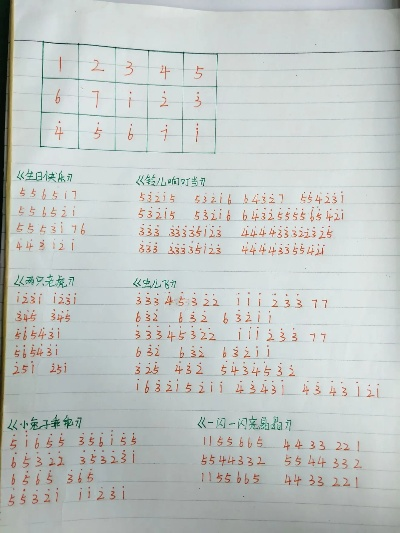 1 2 3 4 5
6 7 i 2̇ 3̇
4̇ 5̇ 6̇ 7̇ i
《生日快乐》
5 5 6 5 i 7
5 5 6 5 2̇ i
5 5 5̇ 3̇ i 7 6
4̇ 4̇ 3̇ i 2̇ i
《铃儿响叮当》
5 3̇ 2̇ i 5 5 3̇ 2̇ i 6 6 4̇ 3̇ 2̇ 7 5̇ 5̇ 4̇ 2̇ 3̇ i
5 3̇ 2̇ i 5 5 3̇ 2̇ i 6 6 4̇ 3̇ 2̇ 5̇ 5̇ 5̇ 5̇ 6̇ 5̇ 4̇ 2̇ i
3̇ 3̇ 3̇ 3̇ 3̇ 3̇ 3̇ 5̇ i 2̇ 3̇ 4̇ 4̇ 4̇ 4̇ 3̇ 3̇ 3̇ 2̇ 2̇ 3̇ 2̇ 5̇
3̇ 3̇ 3̇ 3̇ 3̇ 3̇ 3̇ 5̇ i 2̇ 3̇ 4̇ 4̇ 4̇ 4̇ 3̇ 3̇ 5̇ 5̇ 4̇ 2̇ i
《两只老虎》
i 2̇ 3̇ i i 2̇ 3̇ i
3̇ 4̇ 5̇ 3̇ 4̇ 5̇
5̇ 6̇ 5̇ 4̇ 3̇ i
5̇ 6̇ 5̇ 4̇ 3̇ i
2̇ 5 i 2̇ 5 i
《虫儿飞》
3̇ 3̇ 3̇ 4̇ 5̇ 3̇ 2̇ 2̇ i i i 2̇ 3̇ 3̇ 7 7
6 3̇ 2̇ 6 3̇ 2̇ 6 3̇ 2̇ i i
3̇ 3̇ 3̇ 4̇ 5̇ 3̇ 2̇ 2̇ i i i 2̇ 3̇ 3̇ 7 7
6 3̇ 2̇ 6 3̇ 2̇ 6 3̇ 2̇ i i
3̇ 2̇ 5̇ 4̇ 3̇ 2̇ 5̇ 4̇ 3̇ 4̇ 5̇ 3̇ 2̇
i 6 3̇ 2̇ i 5̇ 2̇ i i 4̇ 3̇ 4̇ 3̇ i 4̇ 3̇ 4̇ 3̇ i 2̇ i
《小兔子乖乖》
5̇ i 6̇ 5̇ 5̇ 3̇ 5̇ 6̇ i 5̇ 5̇
6̇ 5̇ 3̇ 2̇ 2̇ 3̇ 5̇ 3̇ 2̇ 3̇ i
6̇ 5̇ 6̇ 5̇ 3̇ 6̇ 5̇
5̇ 5̇ 3̇ 2̇ i i i 2̇ 3̇ i
《一闪一闪亮晶晶》
1 1 5 5 6 6 5 4 4 3 3 2 2 1
5 5 4 4 3 3 2 5 5 4 4 3 3 2
1 1 5 5 6 6 5 4 4 3 3 2 2 1